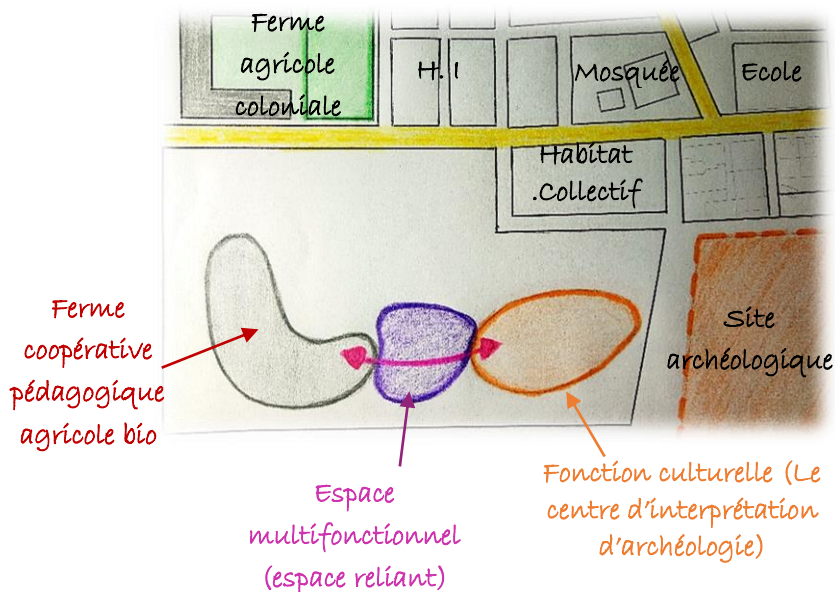 Ferme
agricole
coloniale
H. I
Mosquée
Ecole
Habitat
.Collectif
Ferme
coopérative
pédagogique
agricole bio
Site
archéologique
Espace
multifonctionnel
(espace reliant)
Fonction culturelle (Le
centre d'interprétation
d'archéologie)